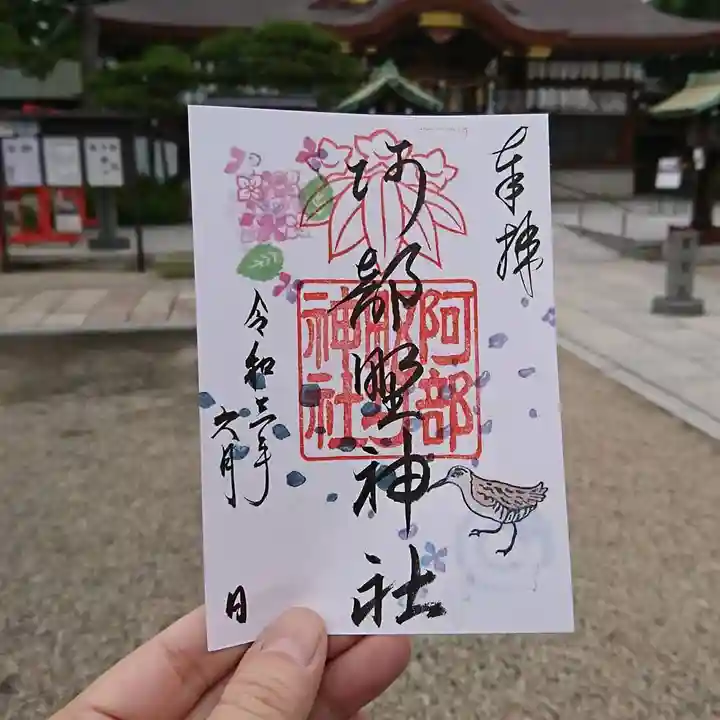 奉拝
阿部野神社
阿部
神社
令和三年
六月
日